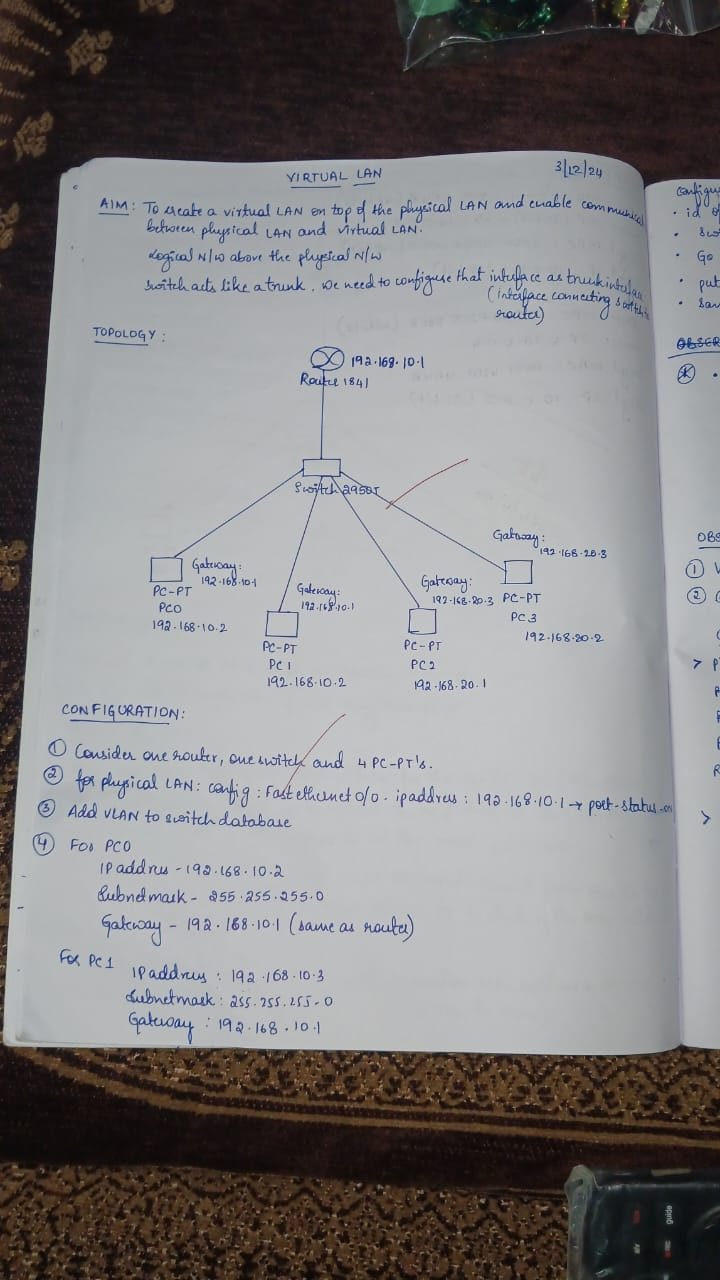 VIRTUAL LAN
3/12/24
AIM: To create a virtual LAN on top of the physical LAN and enable
between physical LAN and virtual LAN.
Logical N/W above the physical N/W
Switch acts like a trunk. We need to configure that interface as trunk
(interface connecting
router)
TOPOLOGY:
192.168.10.1
Router 1841
Switch 2950T
Gateway:
192.168.20.3
Gateway:
192.168.10.1
PC-PT
PC0
192.168.10.2
Gateway:
192.168.10.1
PC-PT
PC1
192.168.10.2
Gateway:
192.168.20.3
PC-PT
PC2
192.168.20.1
PC-PT
PC3
192.168.20.2
CONFIGURATION:
① Consider one router, one switch and 4 PC-PT's.
② for physical LAN: config: Fastethernet 0/0. ipaddress: 192.168.10.1 → port-status-on
③ Add VLAN to switch database
④ For PC0
IP address - 192.168.10.2
Subnetmask - 255.255.255.0
Gateway - 192.168.10.1 (same as router)
For PC1
IP address: 192.168.10.3
Subnetmask: 255.255.255.0
Gateway: 192.168.10.1
• id
• Go
• put
①
②